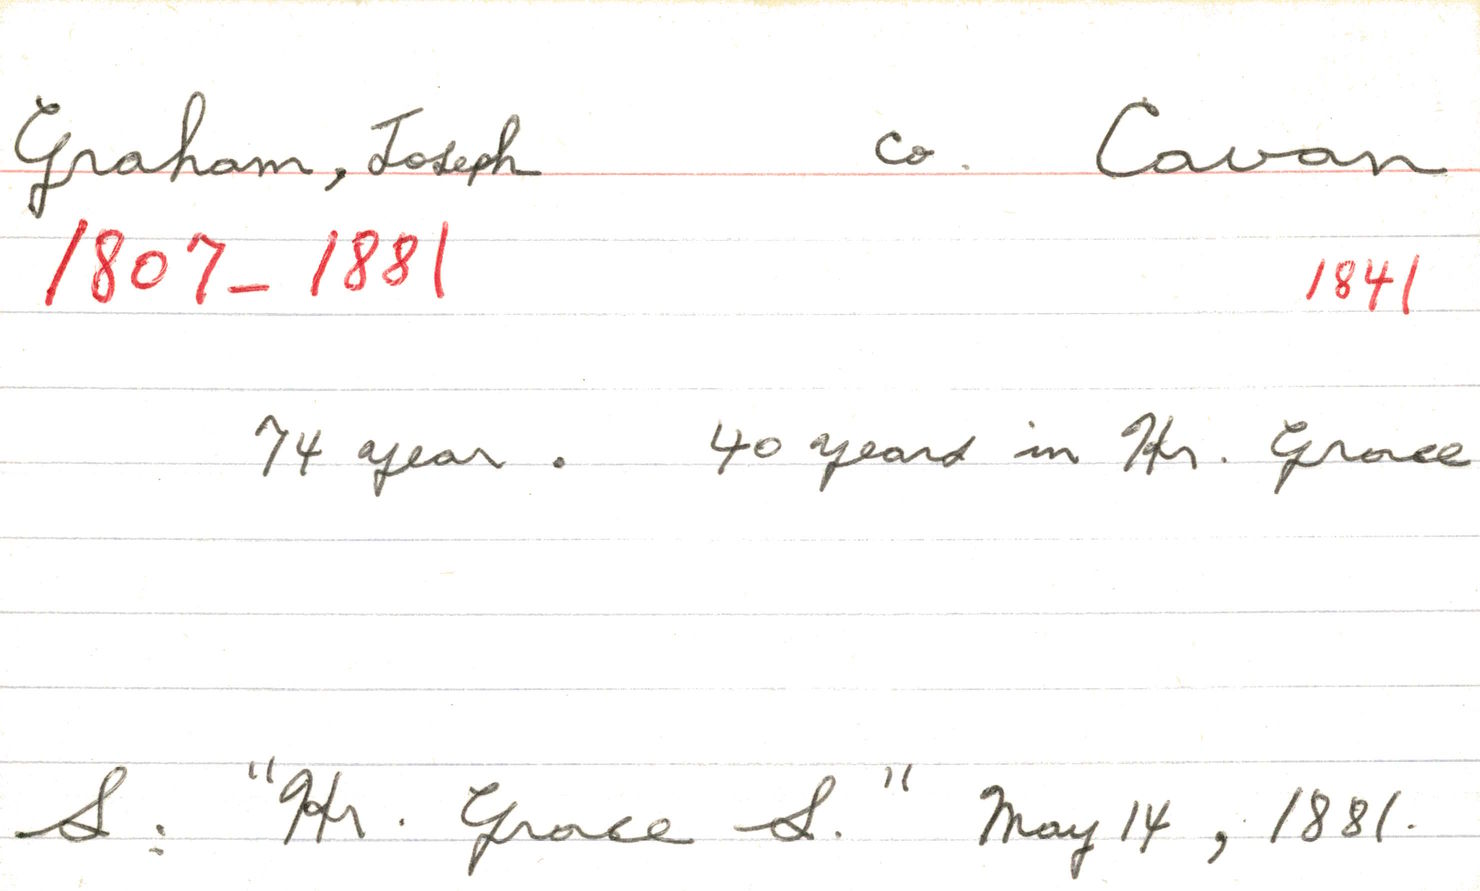 Graham, Joseph co. Cavan
1807-1881 1841
74 year. 40 years in Hr. Grace
S: "Hr. Grace S." May 14, 1881.